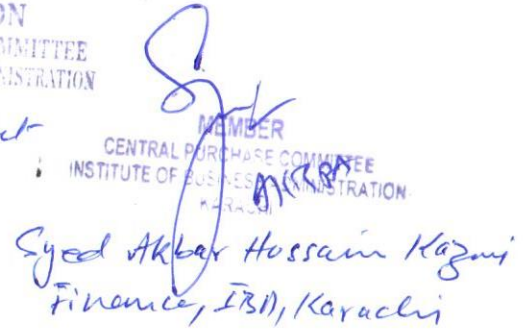 ON
MMITTEE
NISTRATION
MEMBER
CENTRAL PURCHASE COMMITTEE
INSTITUTE OF BUSINESS ADMINISTRATION
KARACHI
Syed Akbar Hussain Kazmi
Finance, IBA, Karachi